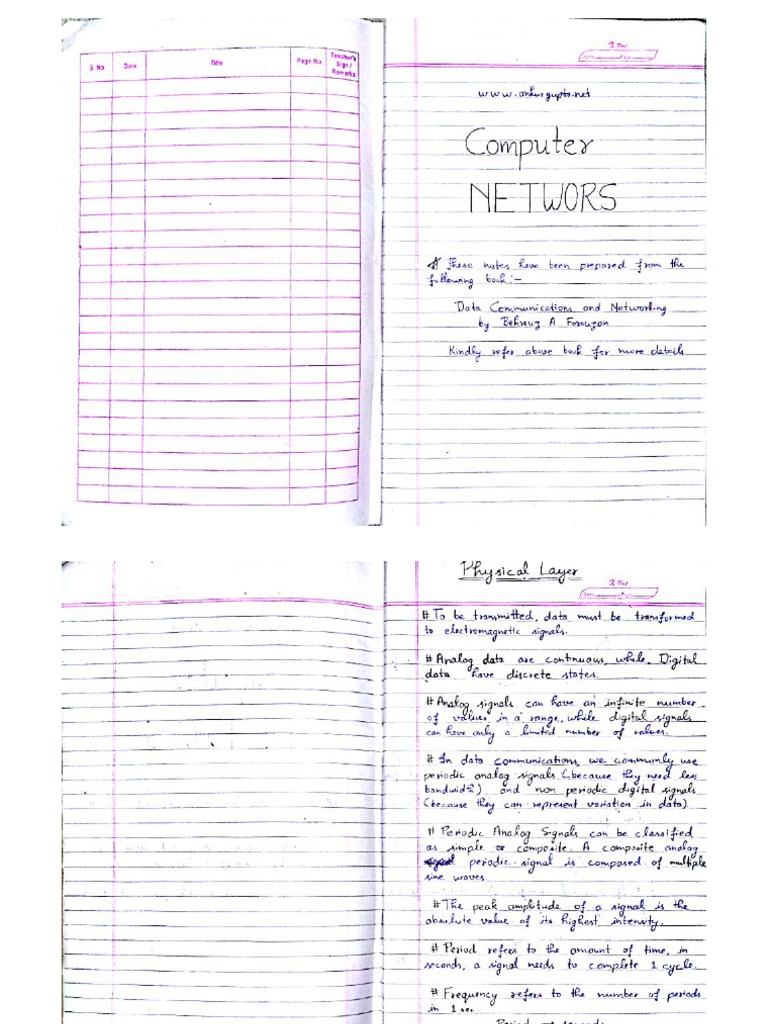 S. No.
Date
Title
Page No.
Teacher's
Sign /
Remarks
www.ankurgupta.net
Computer
NETWORS
These notes have been prepared from the
following book:-
Data Communications and Networking
by Behrouz A Forouzan
Kindly refer above book for more details
Physical Layer
# To be transmitted, data must be transformed
to electromagnetic signals.
# Analog data are continuous, while, Digital
data have discrete states.
# Analog signals can have an infinite number
of values in a range, while digital signals
can have only a limited number of values.
# In data communications, we commonly use
periodic analog signals (because they need less
bandwidth) and non periodic digital signals
(because they can represent variation in data).
# Periodic Analog Signals can be classified
as simple or composite. A composite analog
periodic signal is composed of multiple
sine waves.
# The peak amplitude of a signal is the
absolute value of its highest intensity.
# Period refers to the amount of time, in
seconds, a signal needs to complete 1 cycle.
# Frequency refers to the number of periods
in 1 sec.